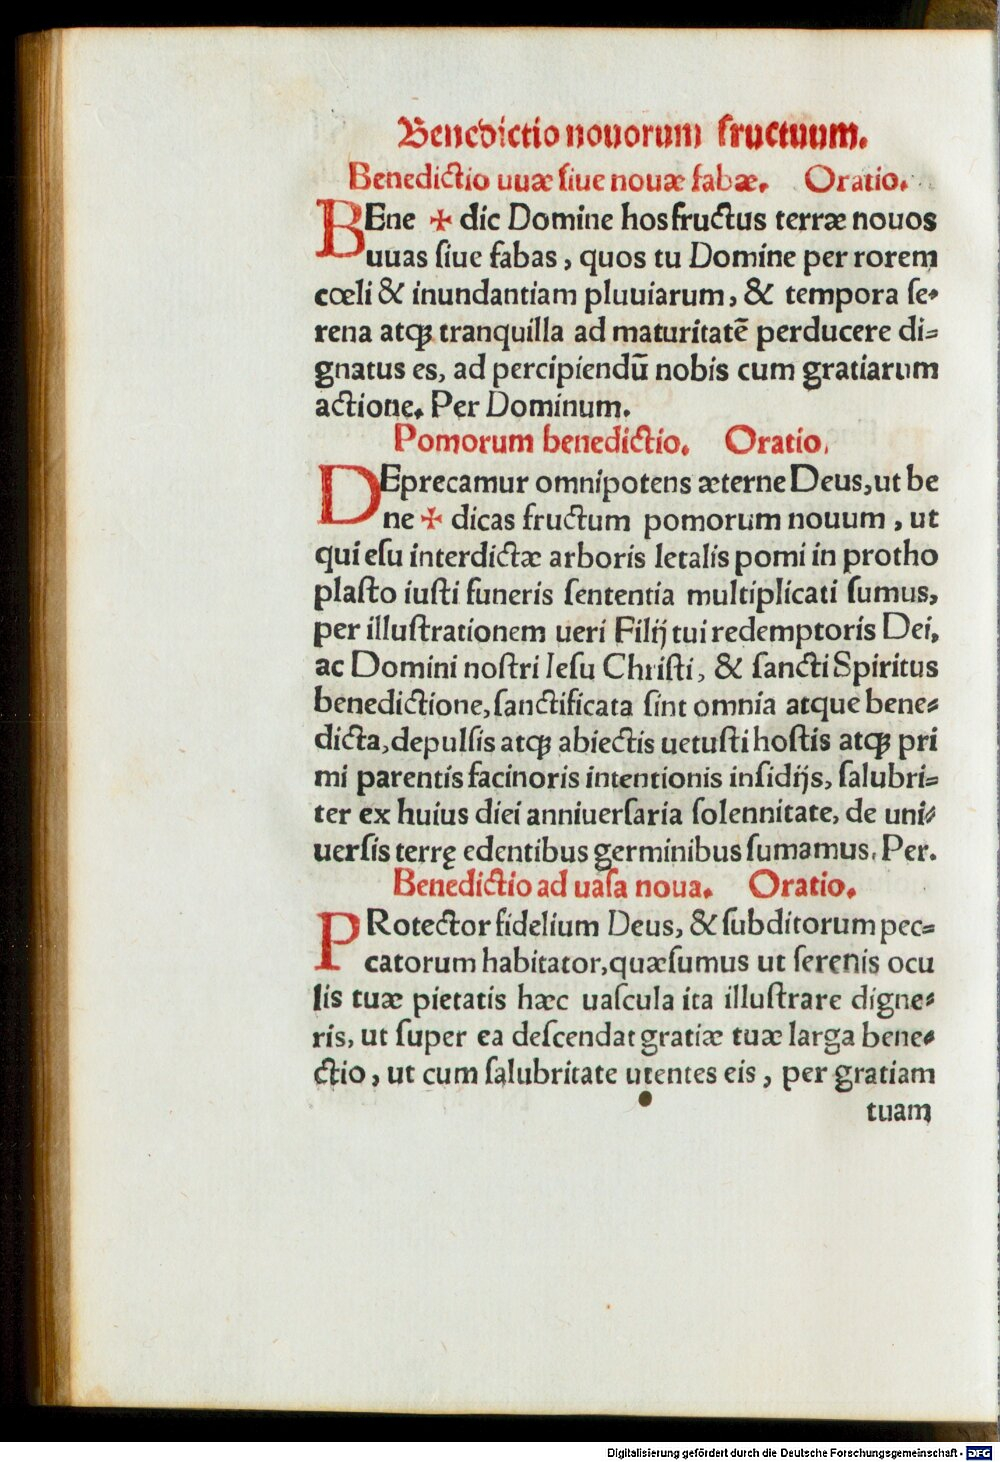 Benedictio nouorum fructuum.
Benedictio uuæ ſiue nouæ fabæ. Oratio.
BEne ✠ dic Domine hos fructus terræ nouos
uuas ſiue fabas, quos tu Domine per rorem
cœli & inundantiam pluuiarum, & tempora ſe-
rena atqꝫ tranquilla ad maturitatē perducere di-
gnatus es, ad percipiendū nobis cum gratiarum
actione. Per Dominum.
Pomorum benedictio. Oratio.
DEprecamur omnipotens æterne Deus, ut be
ne ✠ dicas fructum pomorum nouum, ut
qui eſu interdictæ arboris letalis pomi in protho
plaſto iuſti funeris ſententia multiplicati ſumus,
per illuſtrationem ueri Filij tui redemptoris Dei,
ac Domini noſtri Ieſu Chriſti, & ſancti Spiritus
benedictione, ſanctificata ſint omnia atque bene-
dicta, depulſis atqꝫ abiectis uetuſti hoſtis atqꝫ pri
mi parentis facinoris intentionis inſidijs, ſalubri-
ter ex huius diei anniuerſaria ſolennitate, de uni-
uerſis terrę edentibus germinibus ſumamus. Per.
Benedictio ad uaſa noua. Oratio.
PRotector fidelium Deus, & ſubditorum pec-
catorum habitator, quæſumus ut ſerenis ocu
lis tuæ pietatis hæc uaſcula ita illuſtrare digne-
ris, ut ſuper ea deſcendat gratiæ tuæ larga bene-
ctio, ut cum ſalubritate utentes eis, per gratiam
tuam
Digitalisierung gefördert durch die Deutsche Forschungsgemeinschaft - DFG